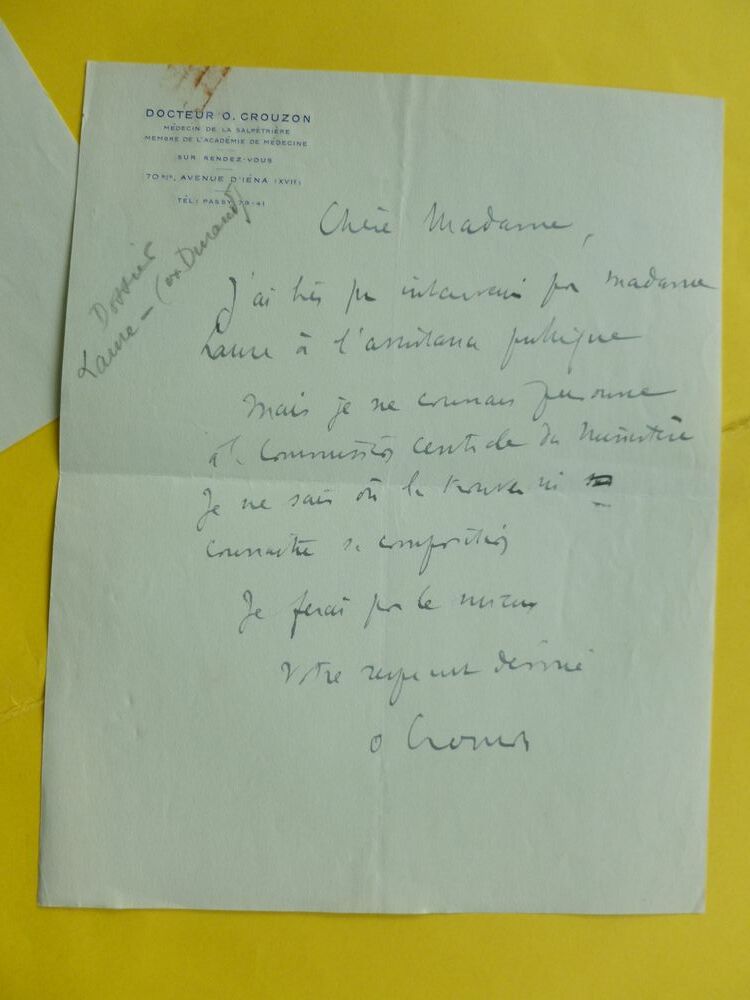 DOCTEUR O. CROUZON
MÉDECIN DE LA SALPÊTRIÈRE
MEMBRE DE L'ACADÉMIE DE MÉDECINE
SUR RENDEZ-VOUS
70 BIS, AVENUE D'IÉNA (XVIE)
TÉL: PASSY 79-41
Dossier
Laure - (ex Durand)
Chère Madame,
J'ai très pu intervenir pr madame
Laure à l'assistance publique
Mais je ne connais personne
à la Commission centrale du Ministère
Je ne sais où la trouver ni
connaitre sa composition
Je ferai pr le mieux
Votre respect dévoué
O Crouzon